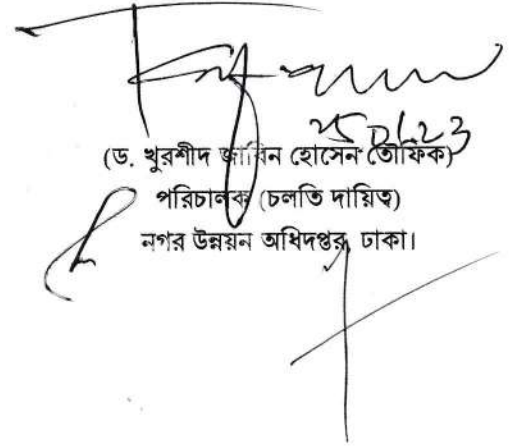 25.01.23
(ড. খুরশীদ জাবিন হোসেন তৌফিক)
পরিচালক (চলতি দায়িত্ব)
নগর উন্নয়ন অধিদপ্তর, ঢাকা।